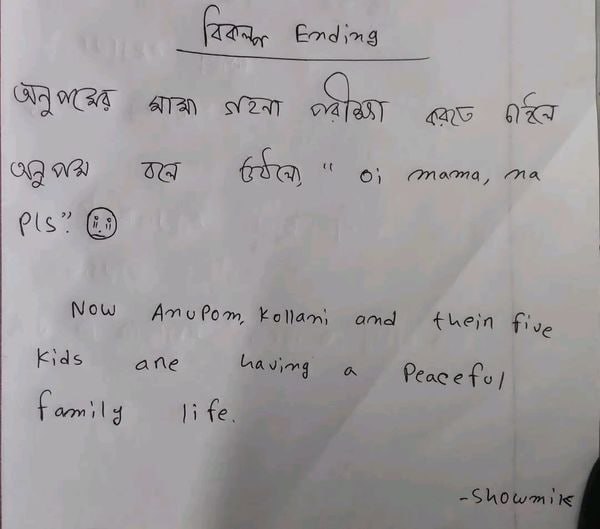 বিকল্প Ending
অনুপমের মামা গহনা পরীক্ষা করতে চাইলে
অনুপম বলে উঠলো, " oi mama, na
pls".
Now Anupom, Kollani and thein five
kids ane having a Peaceful
family life.
-Showmik